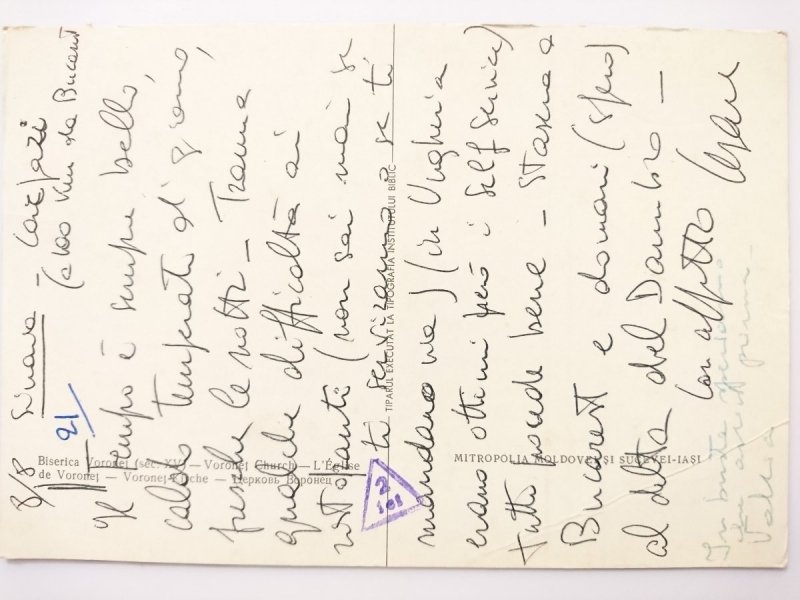 8/8 Sinaia - Carpazi
(a 100 Km da Bucarest
21
Il tempo è sempre bello,
caldo temperato di giorno,
fresche le notti - Tranne
qualche difficoltà ai
ristoranti (non sai mai se
ti serviranno o se ti
mandano via) (in Ungheria
erano ottimi però i self service)
tutto procede bene - Stasera a
Bucarest e domani (spero)
al delta del Danubio -
Con affetto
In busta
prima -
Biserica Voroneț (sec. XV) — Voroneț Church — L'Église
de Voroneț — Voroneț-Kirche — Церковь Воронец
TIPARUL EXECUTAT LA TIPOGRAFIA INSTITUTULUI BIBLIC
MITROPOLIA MOLDOVEI ȘI SUCEVEI-IAȘI
2
lei